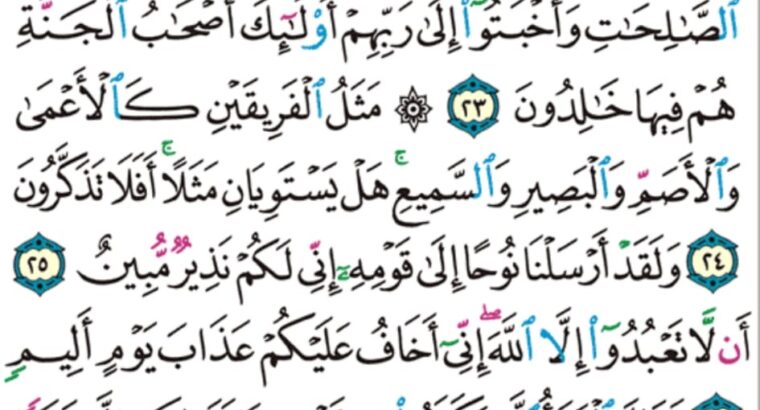 ٱلصَّٰلِحَٰتِ وَأَخْبَتُوٓا۟ إِلَىٰ رَبِّهِمْ أُو۟لَٰٓئِكَ أَصْحَٰبُ ٱلْجَنَّةِ
هُمْ فِيهَا خَٰلِدُونَ ٢٣ ۞ مَثَلُ ٱلْفَرِيقَيْنِ كَٱلْأَعْمَىٰ
وَٱلْأَصَمِّ وَٱلْبَصِيرِ وَٱلسَّمِيعِ ۚ هَلْ يَسْتَوِيَانِ مَثَلًا ۚ أَفَلَا تَذَكَّرُونَ
٢٤ وَلَقَدْ أَرْسَلْنَا نُوحًا إِلَىٰ قَوْمِهِۦٓ إِنِّى لَكُمْ نَذِيرٌ مُّبِينٌ ٢٥
أَن لَّا تَعْبُدُوٓا۟ إِلَّا ٱللَّهَ ۖ إِنِّىٓ أَخَافُ عَلَيْكُمْ عَذَابَ يَوْمٍ أَلِيمٍ